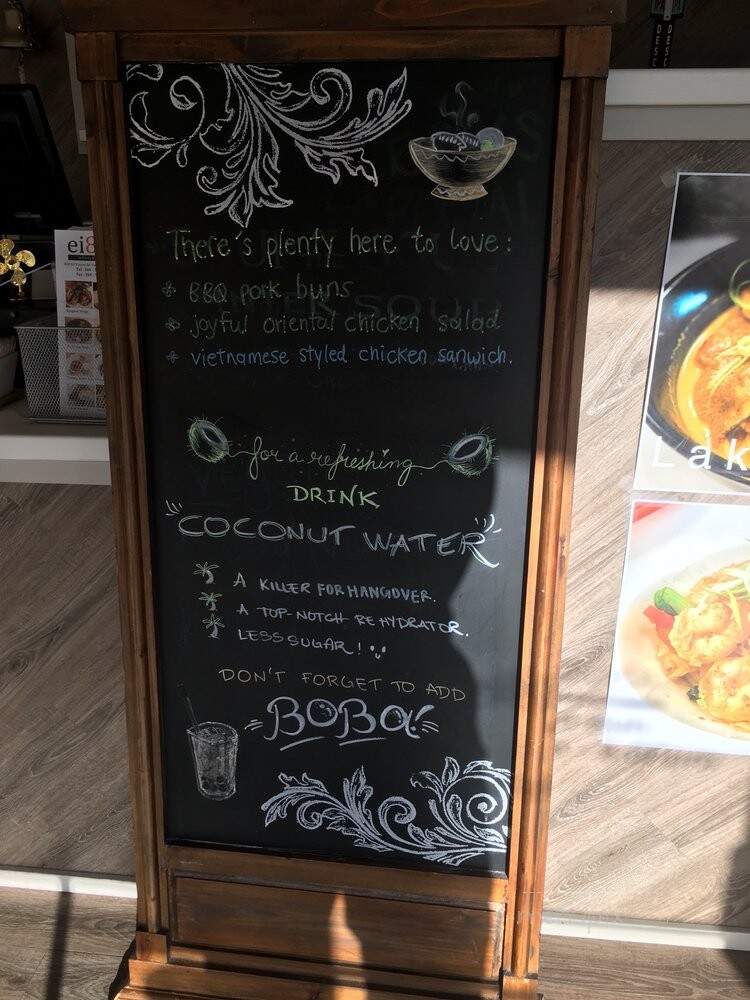 There's plenty here to love:
BBQ pork buns
joyful oriental chicken salad
vietnamese styled chicken sanwich.
for a refreshing
DRINK
"COCONUT WATER"
A KILLER FOR HANGOVER.
A TOP-NOTCH REHYDRATOR.
LESS SUGAR!
DON'T FORGET TO ADD
BOBA!
ei8
Lak
DESC